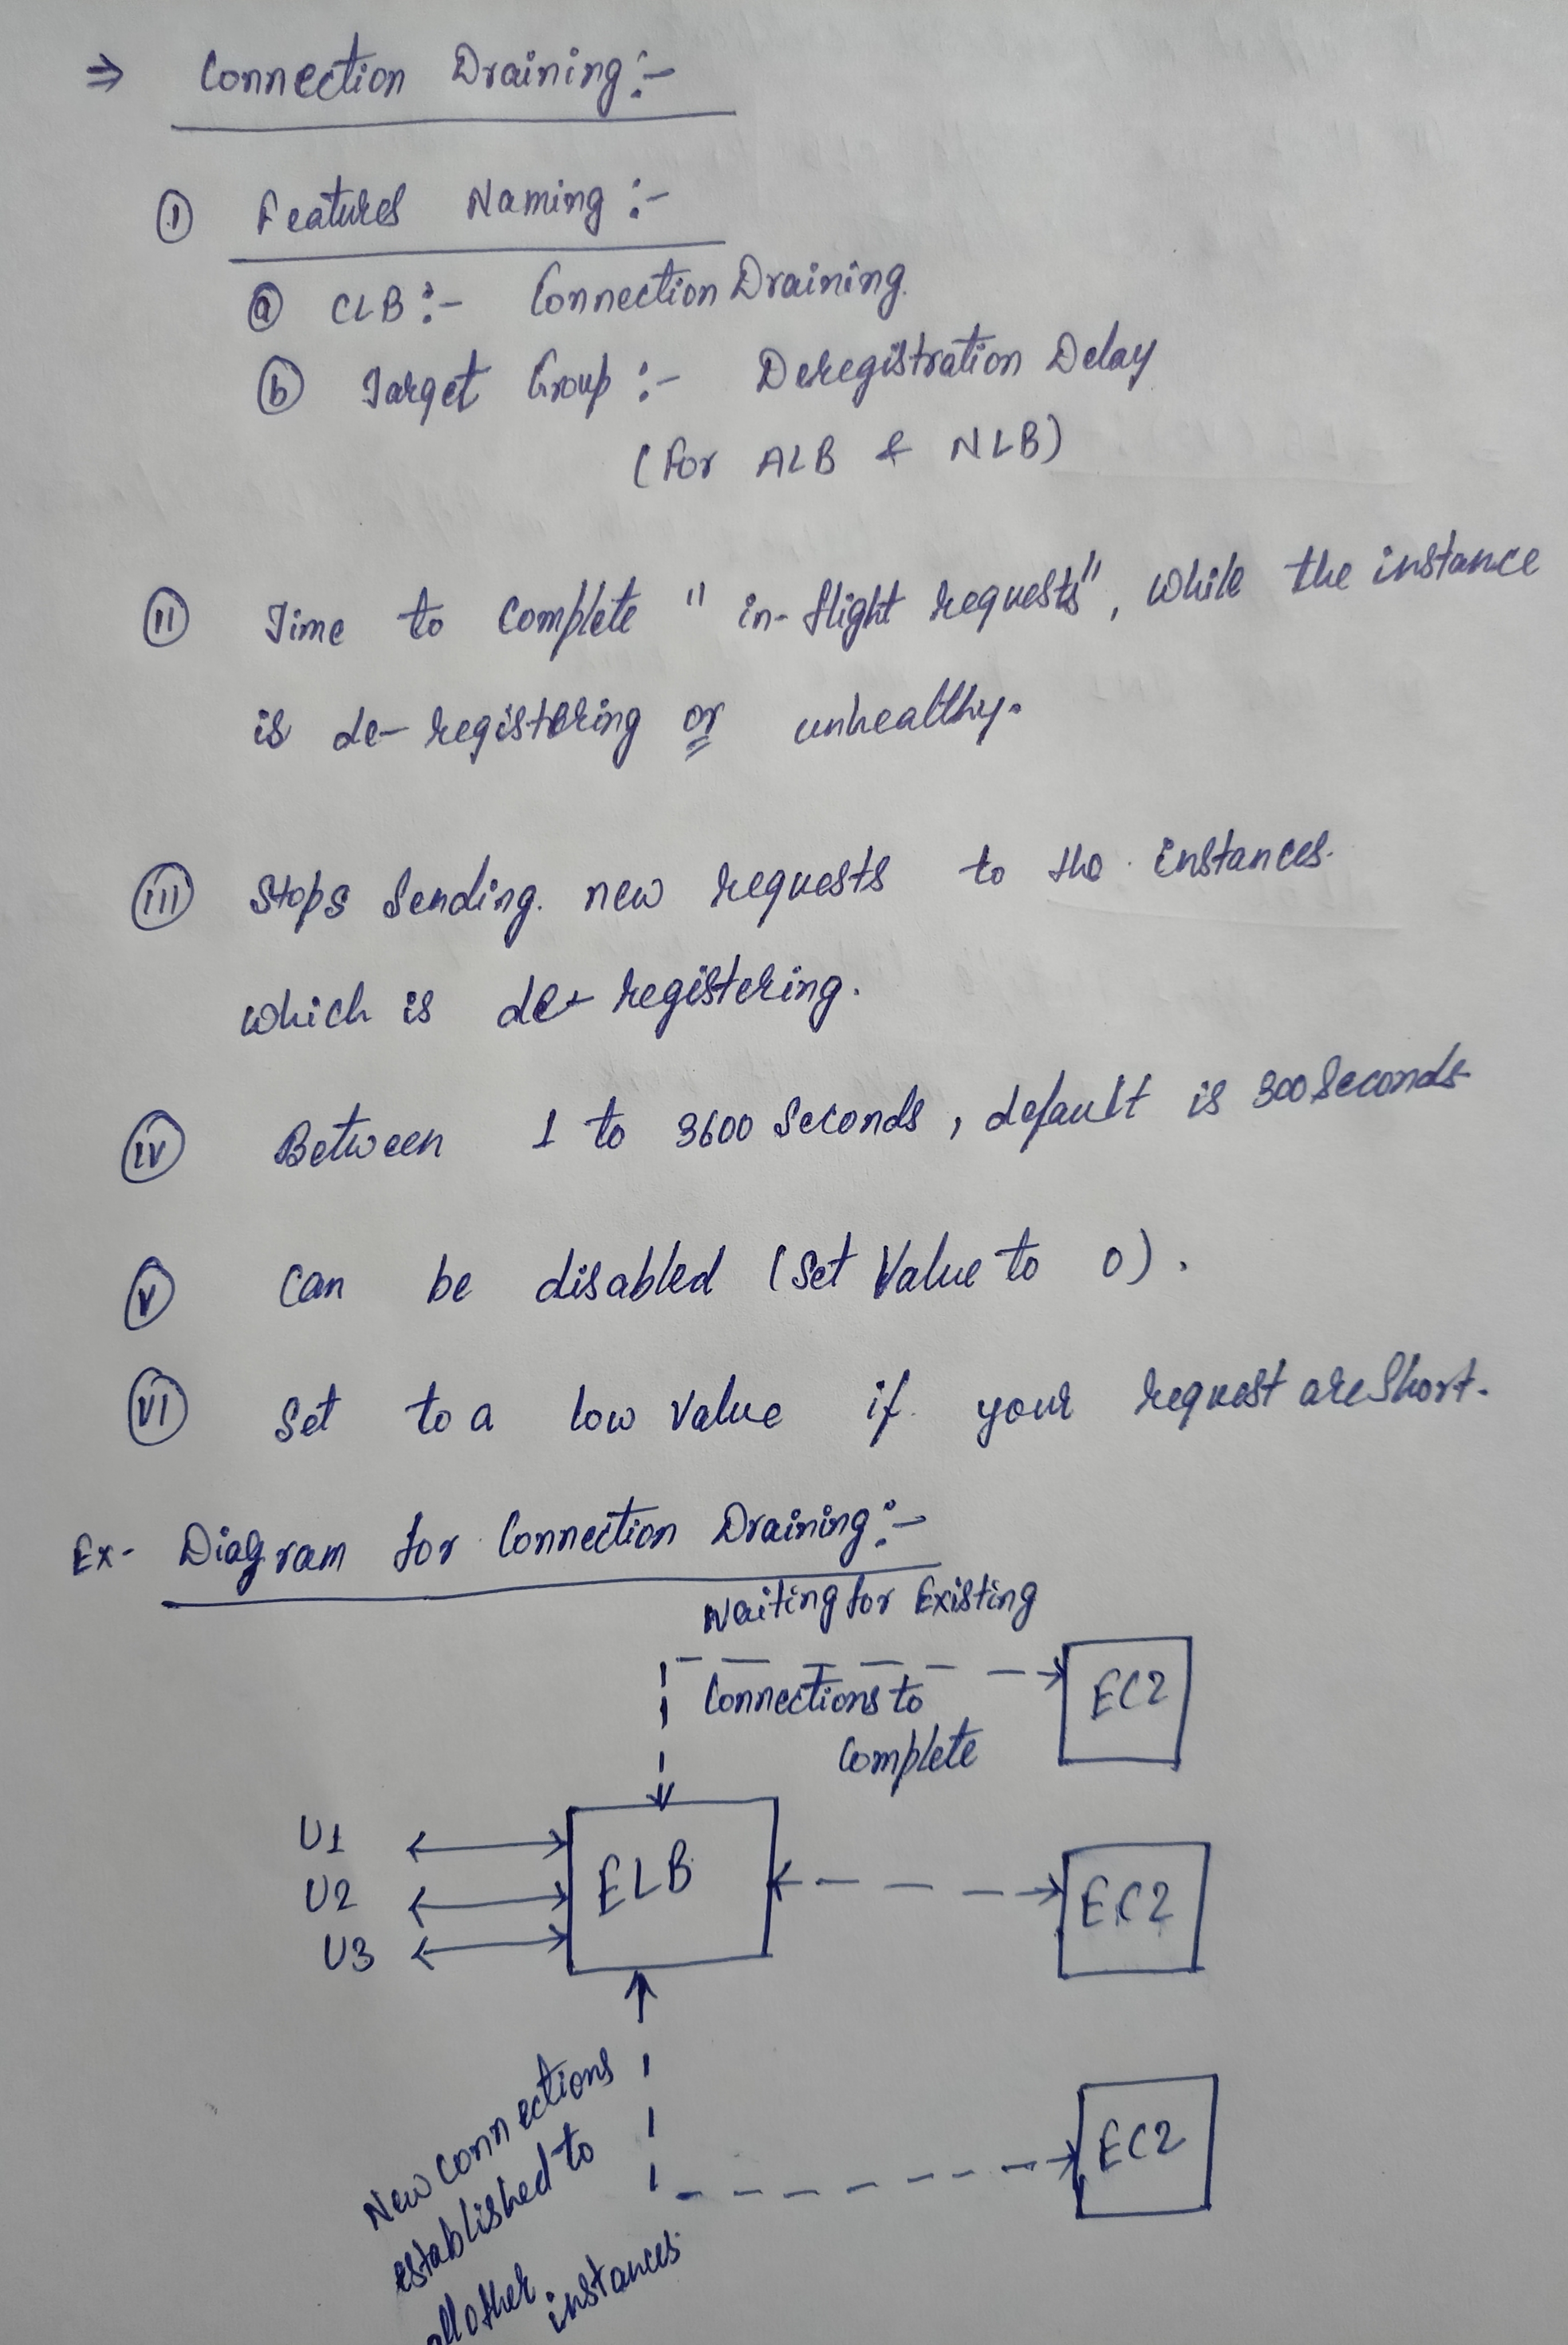 ⇒ Connection Draining :-
(I) Features Naming :-
(a) CLB :- Connection Draining.
(b) Target Group :- Deregistration Delay
(For ALB & NLB)
(II) Time to Complete "in-flight requests", while the instance
is de-registering or unhealthy.
(III) Stops Sending. new requests to the instances.
which is de-registering.
(IV) Between 1 to 3600 Seconds, default is 300 Seconds
(V) Can be disabled (Set Value to 0).
(VI) Set to a low value if your request are Short.
Ex- Diagram for Connection Draining :-
Waiting for Existing
Connections to
Complete
EC2
U1
U2
U3
ELB
EC2
New connections
established to
all other instances
EC2